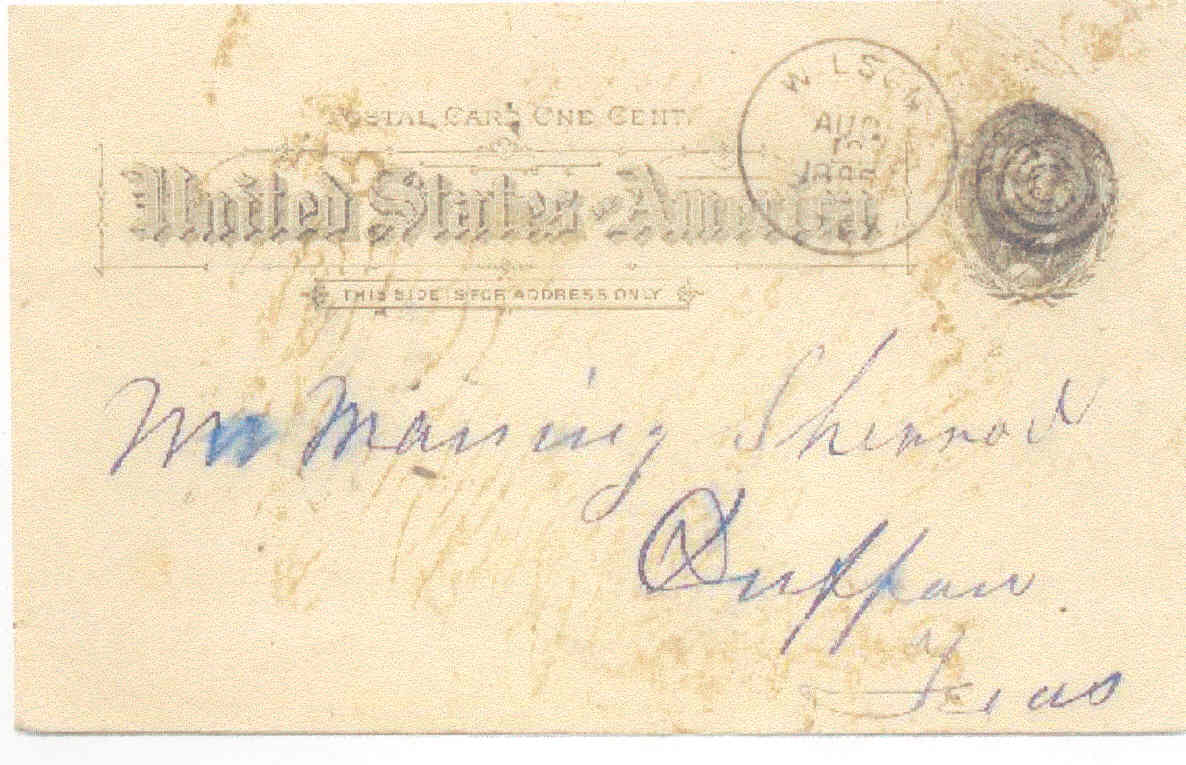 POSTAL CARD ONE CENT.
United States of America
THIS SIDE IS FOR ADDRESS ONLY
WILSON
AUG
Mr Maning Sherrod
Duffau
Texas